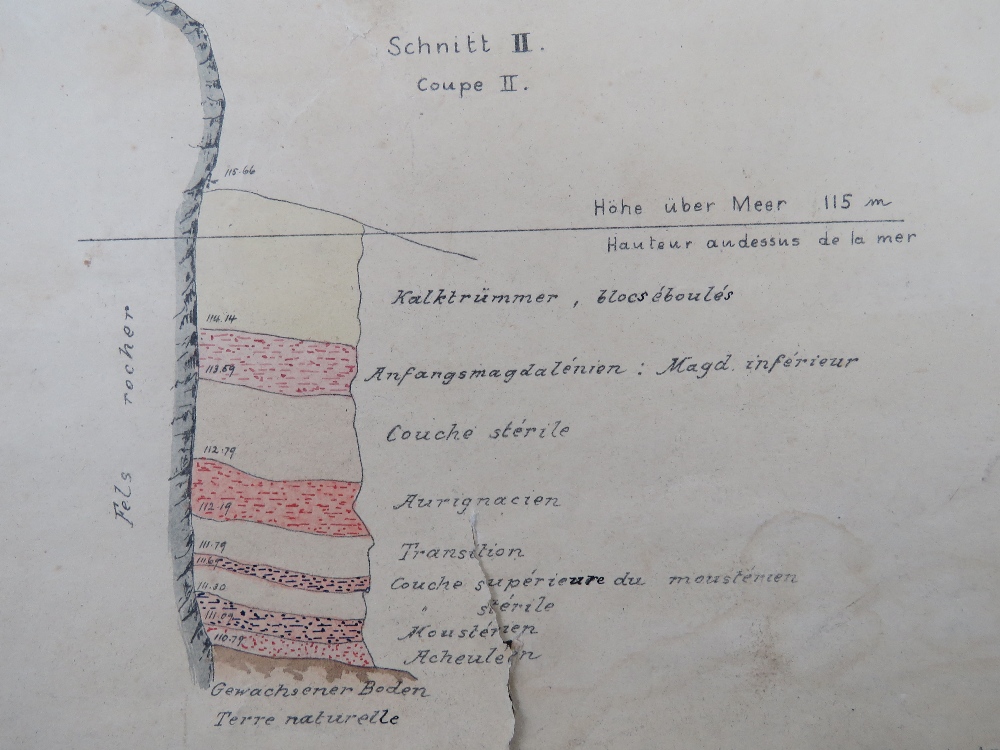 Schnitt II.
Coupe II.
115.66
Höhe über Meer 115 m
Hauteur audessus de la mer
Kalktrümmer, blocs éboulés
114.14
Anfangsmagdalénien : Magd. inférieur
113.69
Couche stérile
112.79
Aurignacien
112.19
Transition
111.79
Couche supérieure du moustérien
" stérile
Moustérien
110.79
Acheuléen
Fels rocher
Gewachsener Boden
Terre naturelle